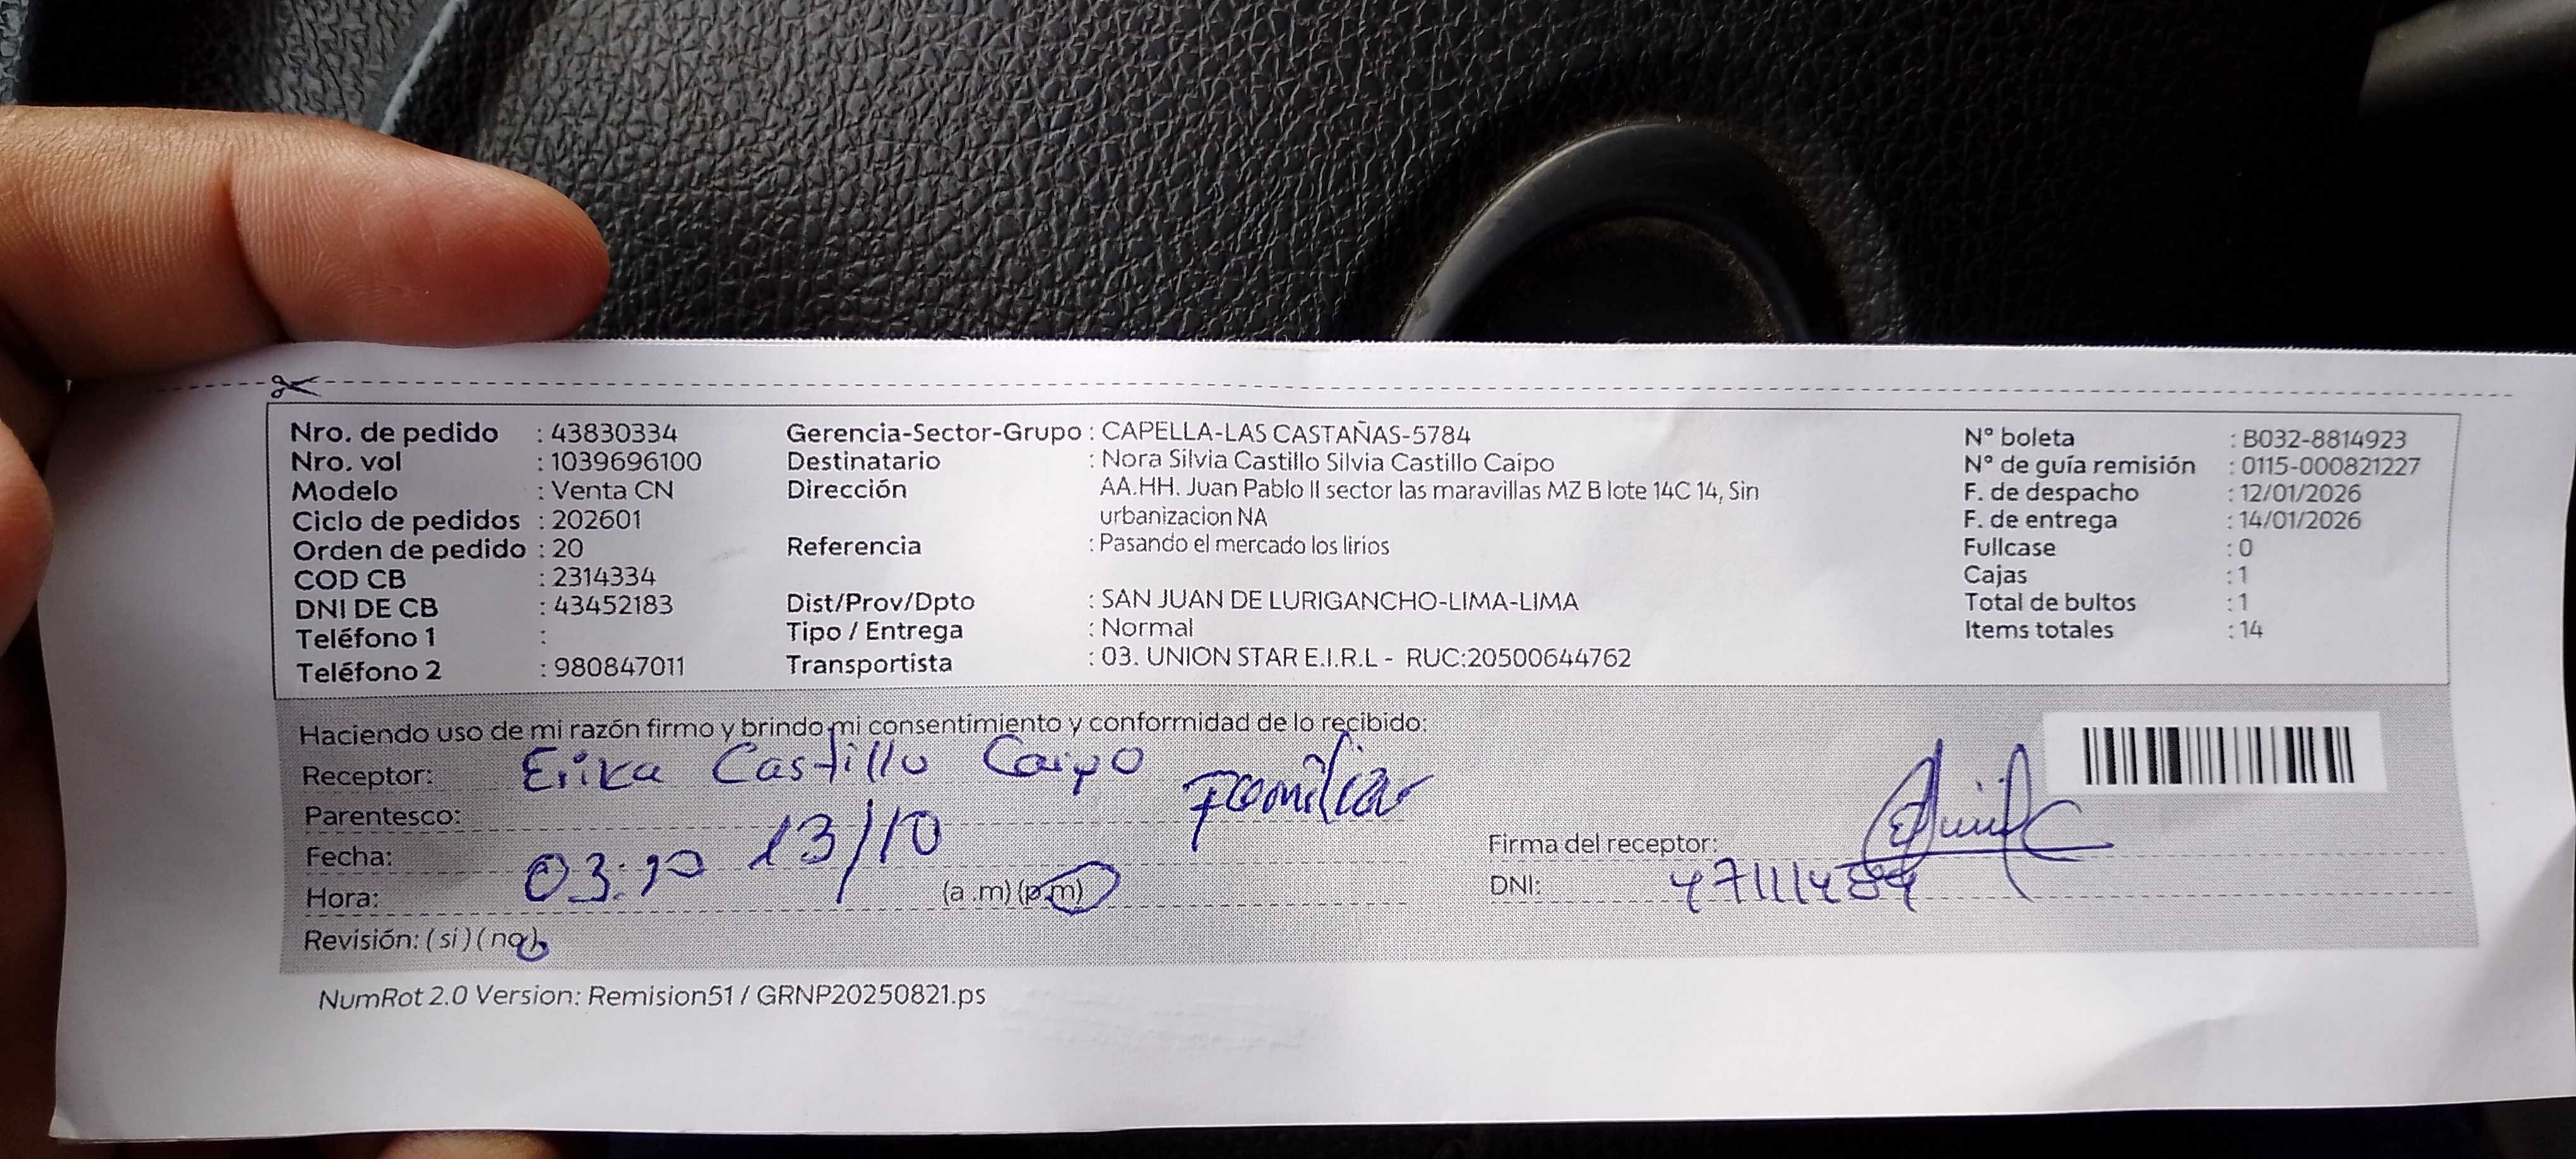 Nro. de pedido : 43830334
Nro. vol : 1039696100
Modelo : Venta CN
Ciclo de pedidos : 202601
Orden de pedido : 20
COD CB : 2314334
DNI DE CB : 43452183
Teléfono 1 :
Teléfono 2 : 980847011
Gerencia-Sector-Grupo : CAPELLA-LAS CASTAÑAS-5784
Destinatario : Nora Silvia Castillo Silvia Castillo Caipo
Dirección AA.HH. Juan Pablo II sector las maravillas MZ B lote 14C 14, Sin
urbanizacion NA
Referencia : Pasando el mercado los lirios
Dist/Prov/Dpto : SAN JUAN DE LURIGANCHO-LIMA-LIMA
Tipo / Entrega : Normal
Transportista : 03. UNION STAR E.I.R.L - RUC:20500644762
N° boleta : B032-8814923
N° de guía remisión : 0115-000821227
F. de despacho : 12/01/2026
F. de entrega : 14/01/2026
Fullcase : 0
Cajas : 1
Total de bultos : 1
Items totales : 14
Haciendo uso de mi razón firmo y brindo mi consentimiento y conformidad de lo recibido:
Receptor: Erika Castillo Caipo
Parentesco: Familiar
Fecha: 13/10
Hora: 03:10 (a.m) (p.m)
Revisión: (si) (no)
Firma del receptor:
DNI:
NumRot 2.0 Version: Remision51 / GRNP20250821.ps